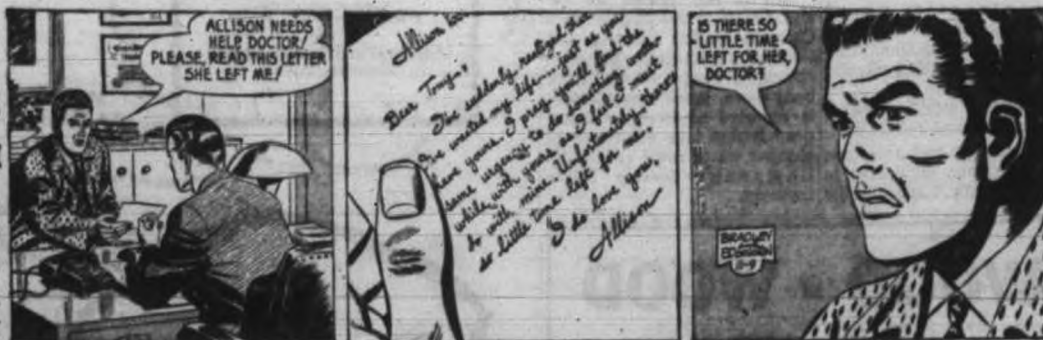 ALLISON NEEDS
HELP DOCTOR!
PLEASE, READ THIS LETTER
SHE LEFT ME!
Allison
Dear Tony:
I've suddenly realized that
I've wasted my life... just as you
have yours. I pray you'll find the
same urgency to do something worth-
while with yours as I feel I must
do with mine. Unfortunately there's
so little time left for me.
I do love you,
Allison
IS THERE SO
LITTLE TIME
LEFT FOR HER,
DOCTOR?
BRADLEY